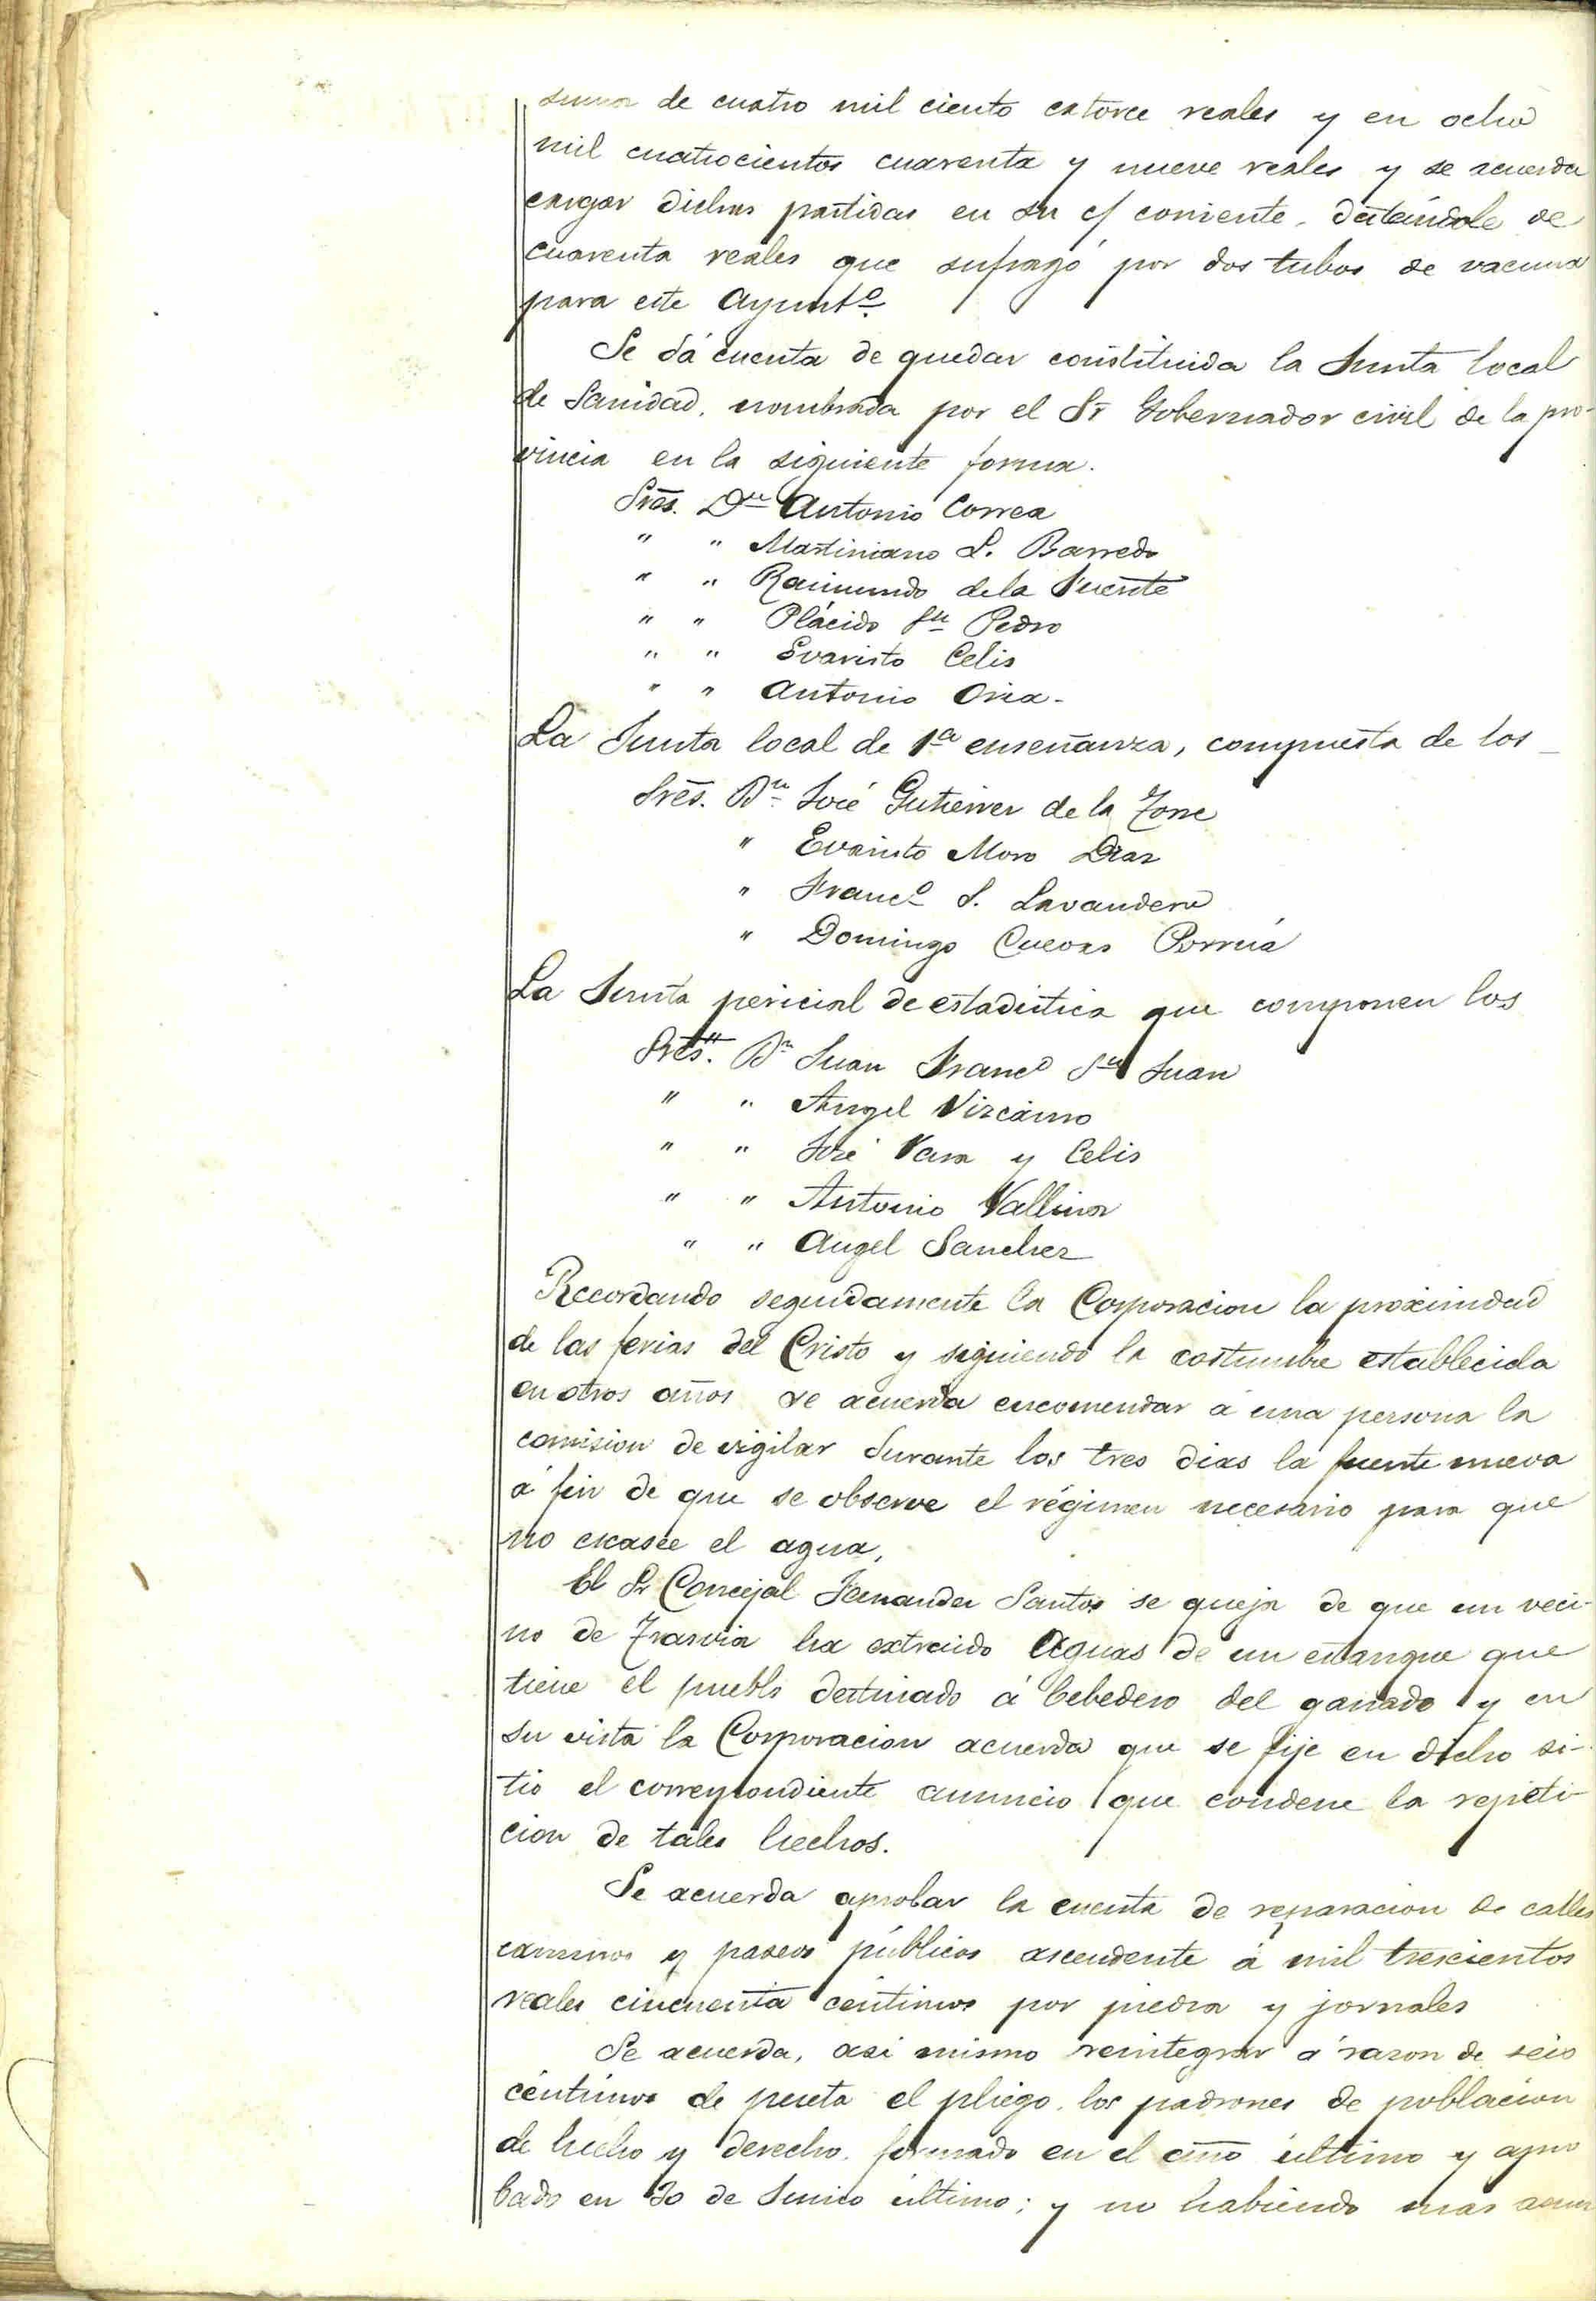 suma de cuatro mil ciento catorce reales y en ocho
mil cuatrocientos cuarenta y nueve reales y se acuerda
cargar dichas partidas en su c/ corriente, datándole de
cuarenta reales que sufragó por dos tubos de vacuna
para este Ayuntº
Se dá cuenta de quedar constituida la Junta local
de Sanidad, nombrada por el Sr Gobernador civil de la pro-
vincia en la siguiente forma.
Sres. Dn Antonio Correa
" " Martiniano S. Barredo
" " Raimundo de la Fuente
" " Plácido Sn Pedro
" " Evaristo Celis
" " Antonio Oria-
La Junta local de 1ª enseñanza, compuesta de los
Sres. Dn José Gutierrez de la Torre
" Evaristo Moro Diaz
" Francº S. Lavandero
" Domingo Cuevas Porrúa
La Junta pericial de estadistica que componen los
Sres. Dn Juan Francº Sn Juan
" " Angel Vizcaino
" " José Vara y Celis
" " Antonio Vallina
" " Angel Sanchez
Recordando seguidamente la Corporacion la proximidad
de las ferias del Cristo y siguiendo la costumbre establecida
en otros años se acuerda encomendar á una persona la
comision de vigilar durante los tres dias la fuente nueva
á fin de que se observe el régimen necesario para que
no escasée el agua,
El Sr Concejal Fernandez Santos se queja de que un veci-
no de Trasvia ha extraido Aguas de un estanque que
tiene el pueblo destinado á bebedero del ganado y en
su vista la Corporacion acuerda que se fije en dicho si-
tio el correspondiente anuncio que condene la repeti-
cion de tales hechos.
Se acuerda aprobar la cuenta de reparacion de calles
caminos y paseos públicos ascendente á mil trescientos
reales cincuenta céntimos por piedra y jornales
Se acuerda, asi mismo reintegrar á razon de seis
céntimos de peseta el pliego, los padrones de poblacion
de hecho y derecho, formado en el año último y apro
bado en 30 de Junio último; y no habiendo mas